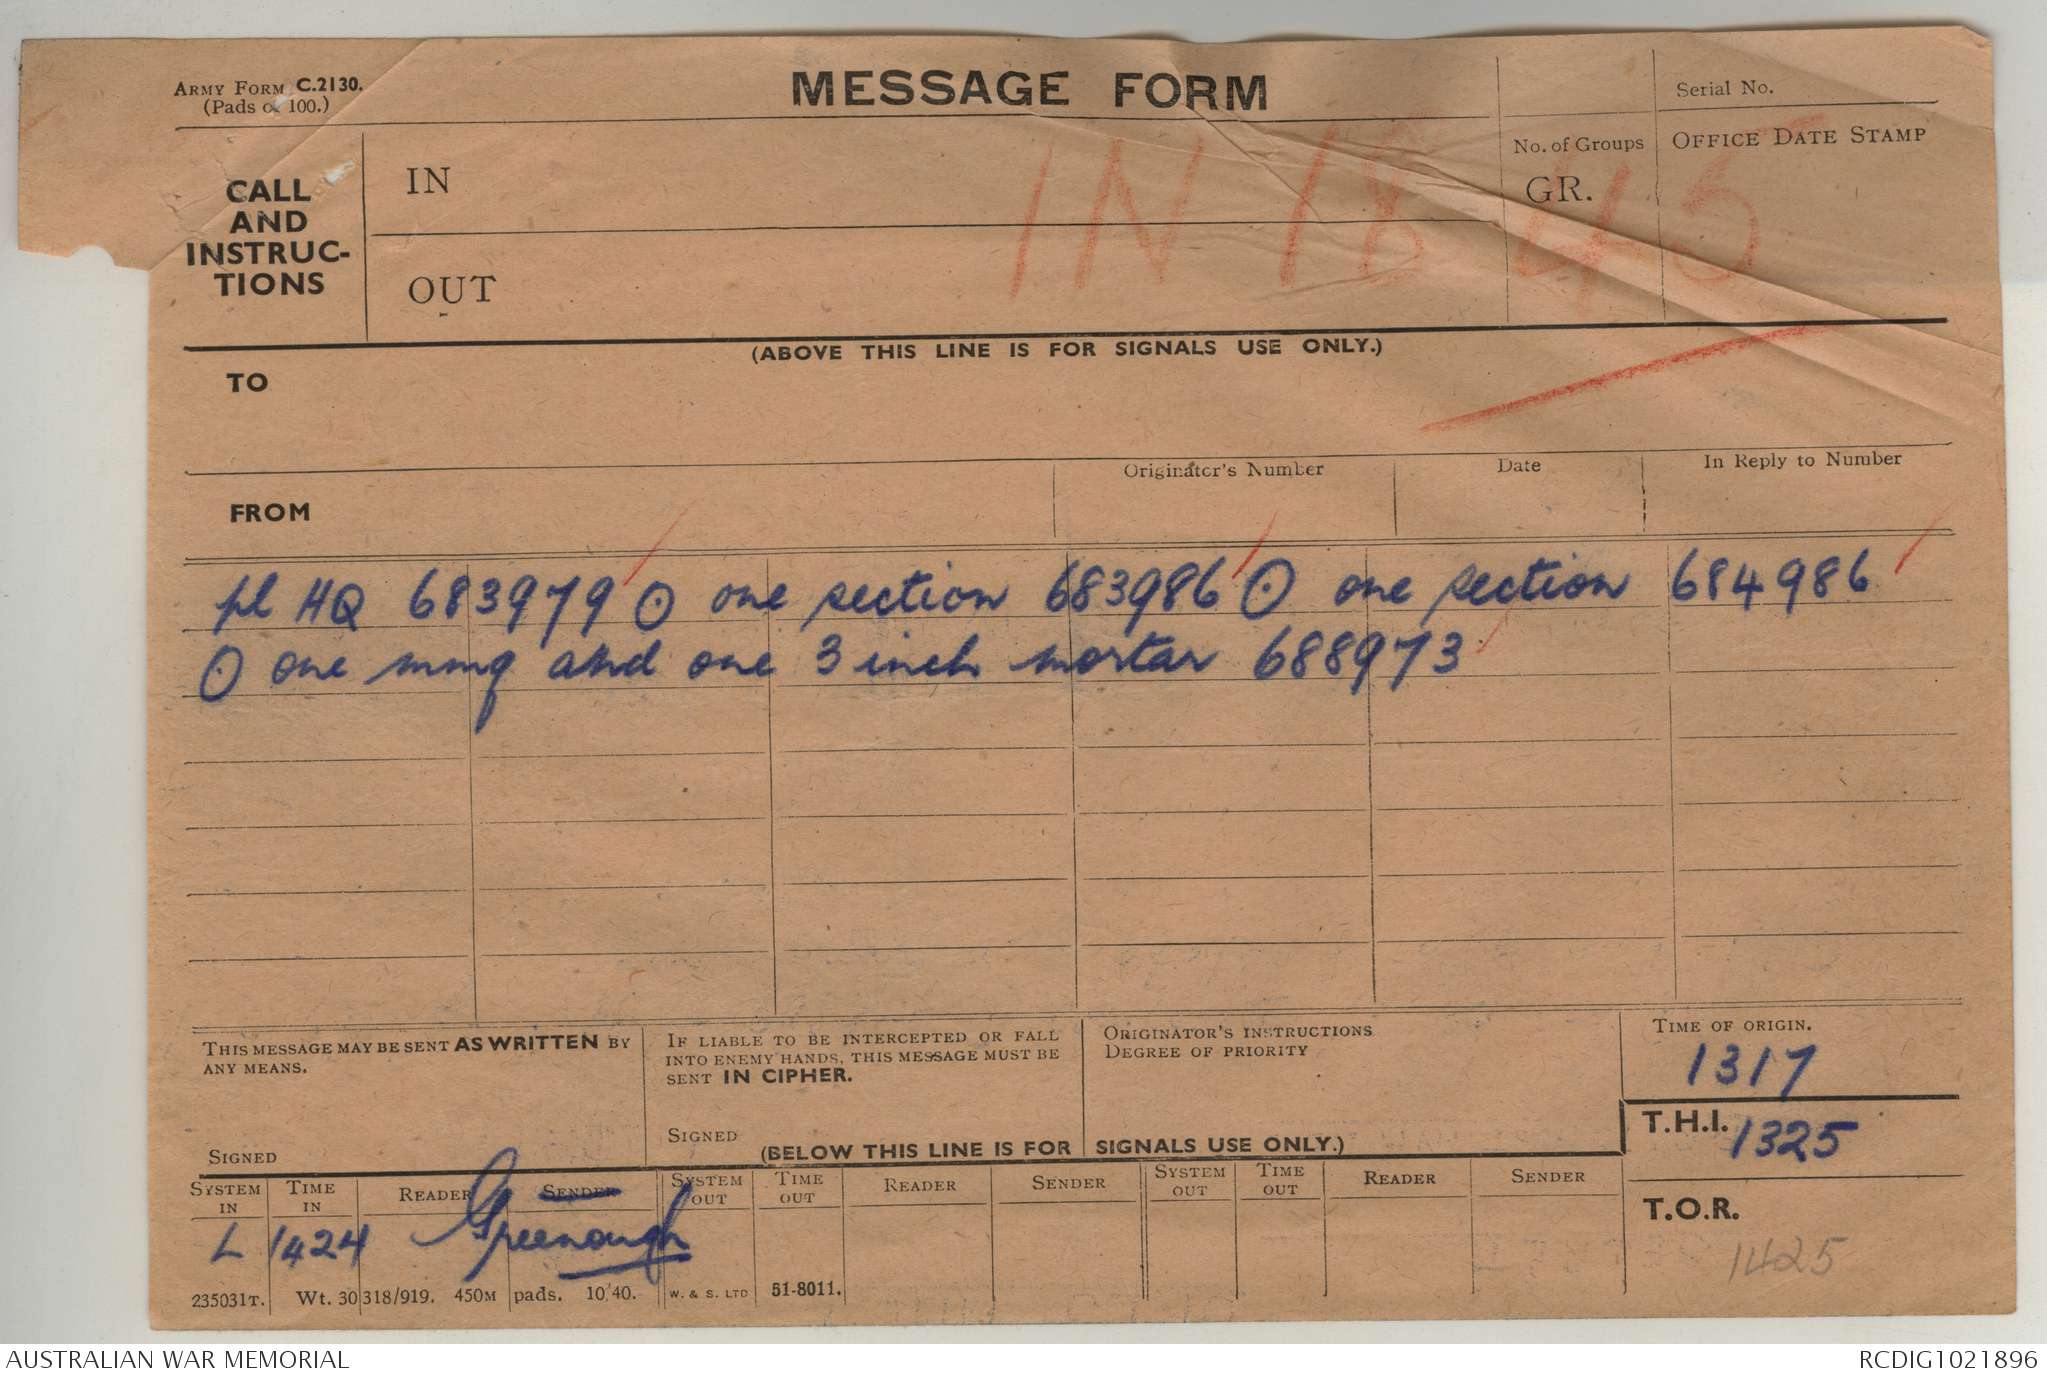 ARMY FORM C.2130.
(Pads of 100.)
MESSAGE FORM
Serial No.
CALL
AND
INSTRUC-
TIONS
IN
IN 1845
No. of Groups
GR.
OFFICE DATE STAMP
OUT
(ABOVE THIS LINE IS FOR SIGNALS USE ONLY.)
TO
FROM
Originator's Number
Date
In Reply to Number
pl HQ 683979 ⊙ one section 683986 ⊙ one section 684986
⊙ one mmg and one 3 inch mortar 688973
THIS MESSAGE MAY BE SENT AS WRITTEN BY
ANY MEANS.
SIGNED
IF LIABLE TO BE INTERCEPTED OR FALL
INTO ENEMY HANDS, THIS MESSAGE MUST BE
SENT IN CIPHER.
SIGNED
ORIGINATOR'S INSTRUCTIONS
DEGREE OF PRIORITY
TIME OF ORIGIN.
1317
T.H.I. 1325
(BELOW THIS LINE IS FOR SIGNALS USE ONLY.)
SYSTEM IN TIME IN READER SENDER SYSTEM OUT TIME OUT READER SENDER SYSTEM OUT TIME OUT READER SENDER
L 1424 Greenough
T.O.R.
1425
235031T. Wt. 30318/919. 450M pads. 10/40. W. & S. LTD 51-8011.
AUSTRALIAN WAR MEMORIAL
RCDIG1021896